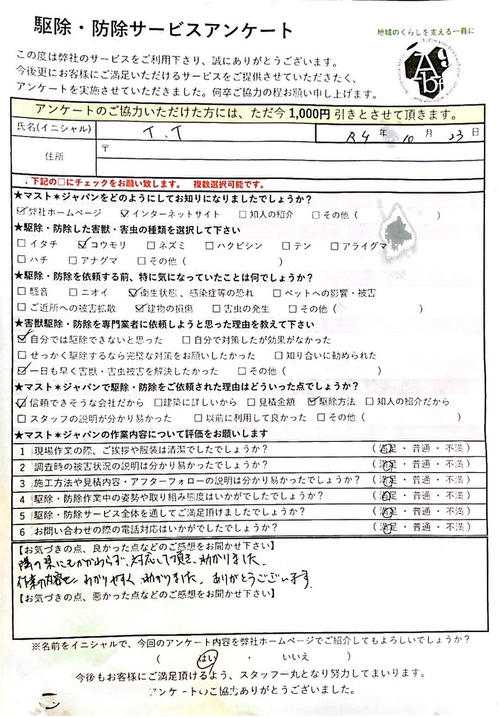 駆除・防除サービスアンケート
地域のくらしを支える一員に
この度は弊社のサービスをご利用下さり、誠にありがとうございます。
今後更にお客様にご満足いただけるサービスをご提供させていただきたく、
アンケートを実施させていただきました。何卒ご協力の程お願い申し上げます。
アンケートのご協力いただけた方には、ただ今1,000円引きとさせて頂きます。
氏名(イニシャル) T.T R4年10月23日
住所 〒
↓下記の□にチェックをお願い致します。 複数選択可能です。
★マスト＊ジャパンをどのようにしてお知りになりましたでしょうか?
☑弊社ホームページ ☑インターネットサイト □知人の紹介 □その他( )
★駆除・防除した害獣・害虫の種類を選択して下さい
□イタチ ☑コウモリ □ネズミ □ハクビシン □テン □アライグマ
□ハチ □アナグマ □その他( )
★駆除・防除を依頼する前、特に気になっていたことは何でしょうか?
□騒音 □ニオイ ☑衛生状態、感染症等の恐れ □ペットへの影響・被害
□ご近所への被害拡散 ☑建物の損傷 □害虫の発生 □その他( )
★害獣駆除・防除を専門業者に依頼しようと思った理由を教えて下さい
☑自分では駆除できないと思った □自分で対策したが効果がなかった
□せっかく駆除するなら完璧な対策をお願いしたかった □知り合いに勧められた
☑一日も早く害獣・害虫被害を解決したかった □その他( )
★マスト＊ジャパンで駆除・防除をご依頼された理由はどういった点でしょうか?
☑信頼できそうな会社だから □建築に詳しいから □見積金額 ☑駆除方法 □知人の紹介だから
□スタッフの説明が分かり易かった □以前に利用して良かった □その他( )
★マスト＊ジャパンの作業内容について評価をお願いします
1 現場作業の際、ご挨拶や服装は清潔でしたでしょうか? (満足・普通・不満)
2 調査時の被害状況の説明は分かり易かったでしょうか? (満足・普通・不満)
3 施工方法や見積内容・アフターフォローの説明は分かり易かったでしょうか? (満足・普通・不満)
4 駆除・防除作業中の姿勢や取り組み態度はいかがでしたでしょうか? (満足・普通・不満)
5 駆除・防除サービス全体を通してご満足頂けましたでしょうか? (満足・普通・不満)
6 お問い合わせの際の電話対応はいかがでしたでしょうか? (満足・普通・不満)
【お気づきの点、良かった点などのご感想をお聞かせ下さい】
にもかかわらず、対応して頂き、助かりました。
作業の内容もわかりやすく、助かりました。ありがとうございます。
【お気づきの点、悪かった点などのご感想をお聞かせ下さい】
※名前をイニシャルで、今回のアンケート内容を弊社ホームページでご紹介してもよろしいでしょうか?
( はい ・ いいえ )
今後もお客様にご満足頂けるよう、スタッフ一丸となり努力してまいります。
アンケートのご協力ありがとうございました。